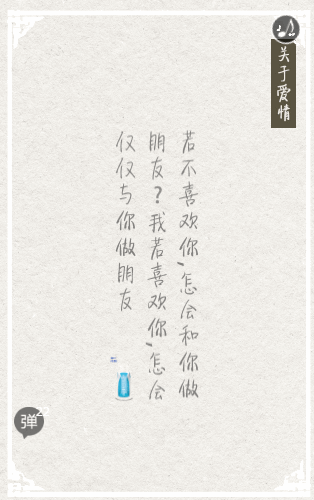 关于爱情
若不喜欢你,怎会和你做
朋友?我若喜欢你,怎会
仅仅与你做朋友
弹